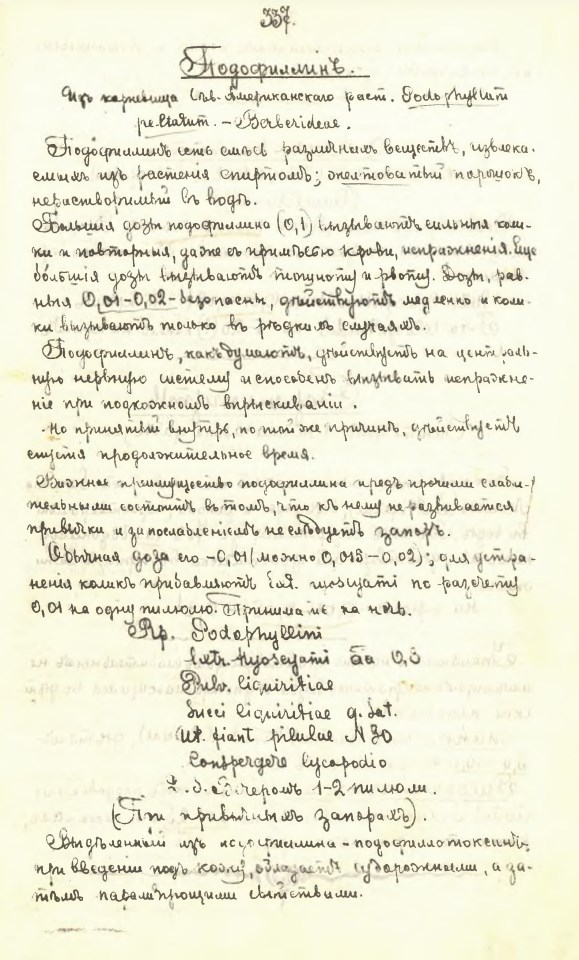 337.
Подофиллинъ.
Изъ корневища Сѣв. Американскаго раст. Podophyllum
peltatum. – Berberideae.
Подофиллинъ есть смѣсь различныхъ веществъ, извлека-
емыхъ изъ растенія спиртомъ; желтоватый порошокъ,
нерастворимый въ водѣ.
Большія дозы подофиллина (0,1) вызываютъ сильныя коли-
ки и повторныя, даже съ примѣсью крови, испражненія. Еще
бо́льшія дозы вызываютъ тошноту и рвоту. Дозы, рав-
ныя 0,01–0,02 – безопасны, дѣйствуютъ медленно и коли-
ки вызываютъ только въ рѣдкихъ случаяхъ.
Подофиллинъ, какъ думаютъ, дѣйствуетъ на централь-
ную нервную систему и способенъ вызывать испражне-
ніе при подкожномъ впрыскиваніи.
Но принятый внутрь, по той же причинѣ, дѣйствуетъ
спустя продолжительное время.
Важное преимущество подофиллина предъ прочими слаби-
тельными состоитъ въ томъ, что къ нему не развивается
привычки и за послабленіемъ не слѣдуетъ запоръ.
Обычная доза его – 0,01 (можно 0,015 – 0,02); для устра-
ненія коликъ прибавляютъ Ext. Hyoscyami по разсчету
0,01 на одну пилюлю. Приниманіе на ночь.
Rp. Podophyllini
Extr. Hyoscyami āā 0,3
Pulv. Liquiritiae
Succi Liquiritiae q. Sat.
Ut fiant pilulae N 30
Conspergere Lycopodio
S. Вечеромъ 1–2 пилюли.
(При привычныхъ запорахъ).
Выдѣленный изъ подофиллина – подофиллотоксинъ,
при введеніи подъ кожу, обладаетъ судорожными, а за-
тѣмъ парализующими свойствами.